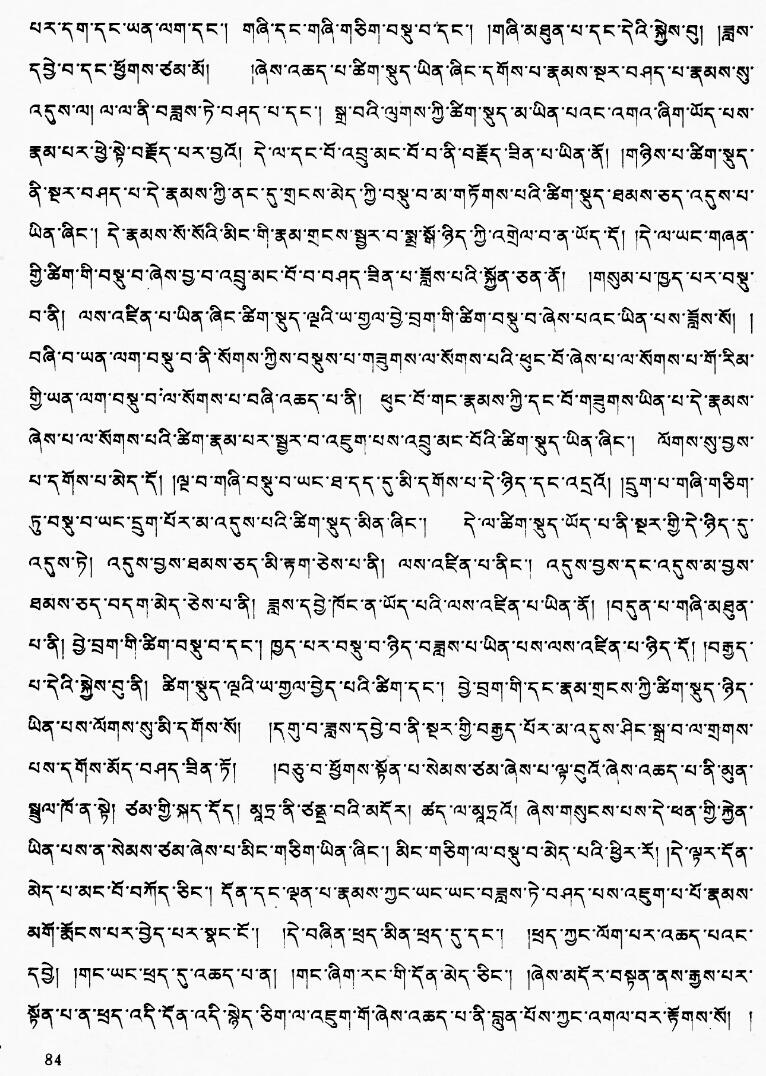 པར་དག་དང་ཡན་ལག་དང་། གཞི་དང་གཞི་གཅིག་བསྡུ་བ་དང་། །གཞི་མཐུན་པ་དང་དེའི་སྐྱེས་བུ། །ཟླས་
དབྱེ་བ་དང་ཕྱོགས་ཙམ་མོ། །ཞེས་འཆད་པ་ཚིག་སྡུད་ཡིན་ཞིང་དགོས་པ་རྣམས་སྔར་བཤད་པ་རྣམས་སུ་
འདུས་ལ། ལ་ལ་ནི་བཟླས་ཏེ་བཤད་པ་དང་། སྒྲ་བའི་ལུགས་ཀྱི་ཚིག་སྡུད་མ་ཡིན་པའང་འགའ་ཞིག་ཡོད་པས་
རྣམ་པར་ཕྱེ་སྟེ་བརྗོད་པར་བྱའོ། དེ་ལ་དང་པོ་འབྲུ་མང་པོ་བ་ནི་བརྗོད་ཟིན་པ་ཡིན་ནོ། །གཉིས་པ་ཚིག་སྡུད་
ནི་སྔར་བཤད་པ་དེ་རྣམས་ཀྱི་ནང་དུ་གྲངས་མེད་ཀྱི་བསྡུ་བ་མ་གཏོགས་པའི་ཚིག་སྡུད་ཐམས་ཅད་འདུས་པ་
ཡིན་ཞིང་། དེ་རྣམས་སོ་སོའི་མིང་གི་རྣམ་གྲངས་སྦྱར་བ་སྨྲ་སྒོ་ཉིད་ཀྱི་འགྲེལ་བ་ན་ཡོད་དོ། །དེ་ལ་ཡང་གཞན་
གྱི་ཚིག་གི་བསྡུ་བ་ཞེས་བྱ་བ་འབྲུ་མང་པོ་བ་བཤད་ཟིན་པ་ཟློས་པའི་སྐྱོན་ཅན་ནོ། །གསུམ་པ་ཁྱད་པར་བསྡུ་
བ་ནི། ལས་འཛིན་པ་ཡིན་ཞིང་ཚིག་སྡུད་ལྔའི་ཡ་གྱལ་བྱེ་བྲག་གི་ཚིག་བསྡུ་བ་ཞེས་པའང་ཡིན་པས་ཟློས་སོ། །
བཞི་བ་ཡན་ལག་བསྡུ་བ་ནི་སོགས་ཀྱིས་བསྡུས་པ་གཟུགས་ལ་སོགས་པའི་ཕུང་པོ་ཞེས་པ་ལ་སོགས་པ་གོ་རིམ་
གྱི་ཡན་ལག་བསྡུ་བ་ལ་སོགས་པ་བཞི་འཆད་པ་ནི། ཕུང་པོ་གང་རྣམས་ཀྱི་དང་པོ་གཟུགས་ཡིན་པ་དེ་རྣམས་
ཞེས་པ་ལ་སོགས་པའི་ཚིག་རྣམ་པར་སྦྱར་བ་འཇུག་པས་འབྲུ་མང་པོའི་ཚིག་སྡུད་ཡིན་ཞིང་། ལོགས་སུ་བྱས་
པ་དགོས་པ་མེད་དོ། །ལྔ་བ་གཞི་བསྡུ་བ་ཡང་ཐ་དད་དུ་མི་དགོས་པ་དེ་ཉིད་དང་འདྲའོ། །དྲུག་པ་གཞི་གཅིག་
ཏུ་བསྡུ་བ་ཡང་དྲུག་པོར་མ་འདུས་པའི་ཚིག་སྡུད་མིན་ཞིང་། དེ་ལ་ཚིག་སྡུད་ཡོད་པ་ནི་སྔར་གྱི་དེ་ཉིད་དུ་
འདུས་ཏེ། འདུས་བྱས་ཐམས་ཅད་མི་རྟག་ཅེས་པ་ནི། ལས་འཛིན་པ་ནིང་། འདུས་བྱས་དང་འདུས་མ་བྱས་
ཐམས་ཅད་བདག་མེད་ཅེས་པ་ནི། ཟླས་དབྱེ་ཁོང་ན་ཡོད་པའི་ལས་འཛིན་པ་ཡིན་ནོ། །བདུན་པ་གཞི་མཐུན་
པ་ནི། བྱེ་བྲག་གི་ཚིག་བསྡུ་བ་དང་། ཁྱད་པར་བསྡུ་བ་ཉིད་བཟླས་པ་ཡིན་པས་ལས་འཛིན་པ་ཉིད་དོ། །བརྒྱད་
པ་དེའི་སྐྱེས་བུ་ནི། ཚིག་སྡུད་ལྔའི་ཡ་གྱལ་བྱེད་པའི་ཚིག་དང་། བྱེ་བྲག་གི་དང་རྣམ་གྲངས་ཀྱི་ཚིག་སྡུད་ཉིད་
ཡིན་པས་ལོགས་སུ་མི་དགོས་སོ། །དགུ་བ་ཟླས་དབྱེ་བ་ནི་སྔར་གྱི་བརྒྱད་པོར་མ་འདུས་ཤིང་སྒྲ་བ་ལ་གྲགས་
པས་དགོས་མོད་བཤད་ཟིན་ཏོ། །བཅུ་བ་ཕྱོགས་སྟོན་པ་སེམས་ཙམ་ཞེས་པ་ལྟ་བུའོ་ཞེས་འཆད་པ་ནི་མུན་
སྤྲུལ་ཁོ་ན་སྟེ། ཙམ་གྱི་སྐད་དོད། མཱཏྲ་ནི་ཙནྡྲ་བའི་མདོར། ཚད་ལ་མཱཏྲའོ། ཞེས་གསུངས་པས་དེ་ཕན་གྱི་རྐྱེན་
ཡིན་པས་ན་སེམས་ཙམ་ཞེས་པ་མིང་གཅིག་ཡིན་ཞིང་། མིང་གཅིག་ལ་བསྡུ་བ་མེད་པའི་ཕྱིར་རོ། །དེ་ལྟར་དོན་
མེད་པ་མང་པོ་བཀོད་ཅིང་། དོན་དང་ལྡན་པ་རྣམས་ཀྱང་ཡང་ཡང་བཟླས་ཏེ་བཤད་པས་འཇུག་པ་པོ་རྣམས་
མགོ་རྨོངས་པར་བྱེད་པར་སྣང་ངོ་། །དེ་བཞིན་ཕྲད་མིན་ཕྲད་དུ་དང་། །ཕྲད་ཀྱང་ལོག་པར་འཆད་པའང་
དབྱེ། །གང་ཡང་ཕྲད་དུ་འཆད་པ་ན། །གང་ཞིག་རང་གི་དོན་མེད་ཅིང་། །ཞེས་མདོར་བསྟན་ནས་རྒྱས་པར་
སྟོན་པ་ན་ཕྲད་འདི་དོན་འདི་སྙེད་ཅིག་ལ་འཇུག་གོ་ཞེས་འཆད་པ་ནི་བླུན་པོས་ཀྱང་འགལ་བར་རྟོགས་སོ། །
84